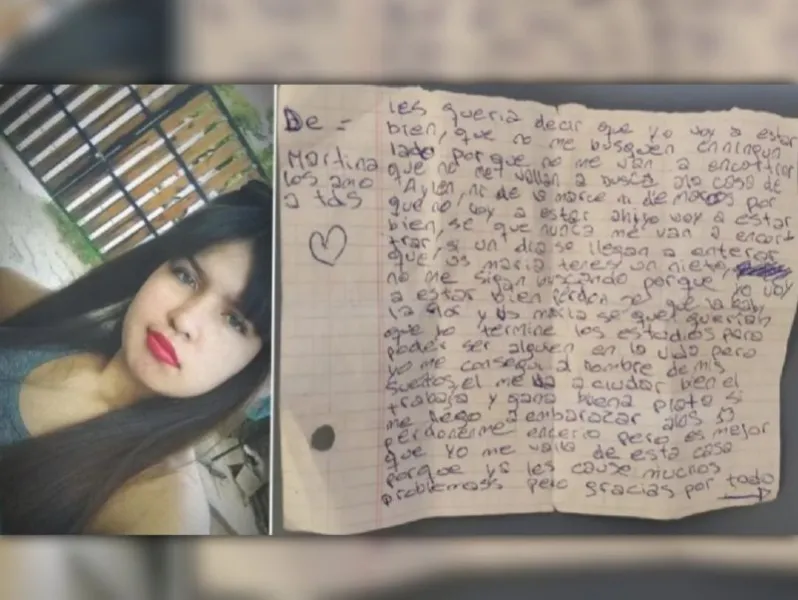 De =
Martina
los amo
a tds
les queria decir que yo voy a estar
bien, que no me busquen en ningun
lado porque no me van a encontrar
que no me vallan a busca ala casa de
Aylen, ni de la marce ni de marcos por
que no voy a estar ahi yo voy a estar
bien, se que nunca me van a encon
trar, si un dia se llegan a enterar
que vs maria teres un nieto
no me sigan buscando porque yo voy
a estar bien perdon se que la
la flor y vs maria se que querian
que yo termine los estudios para
poder ser alguien en la vida pero
yo me consegui al hombre de mis
sueños, el me va a ciudar bien el
trabaja y gana buena plata si
me llego a embarazar alos 13
perdonenme encerio pero es mejor
que yo me valla de esta casa
porque yo les cause muchos
problemass pero gracias por todo